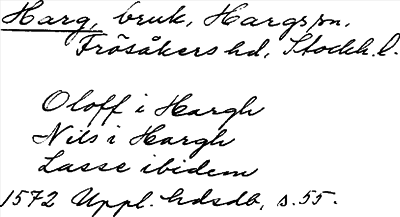 Harg, bruk, Hargs sn,
Frösåkers hd, Stockh. l.
Oloff i Hargh
Nils i Hargh
Lasse ibidem
1572 Uppl. hdsdb, s. 55.